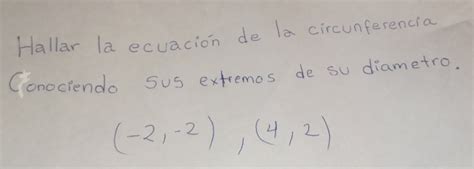 Hallar la ecuación de la circunferencia
Conociendo sus extremos de su diametro.
(-2,-2) , (4,2)